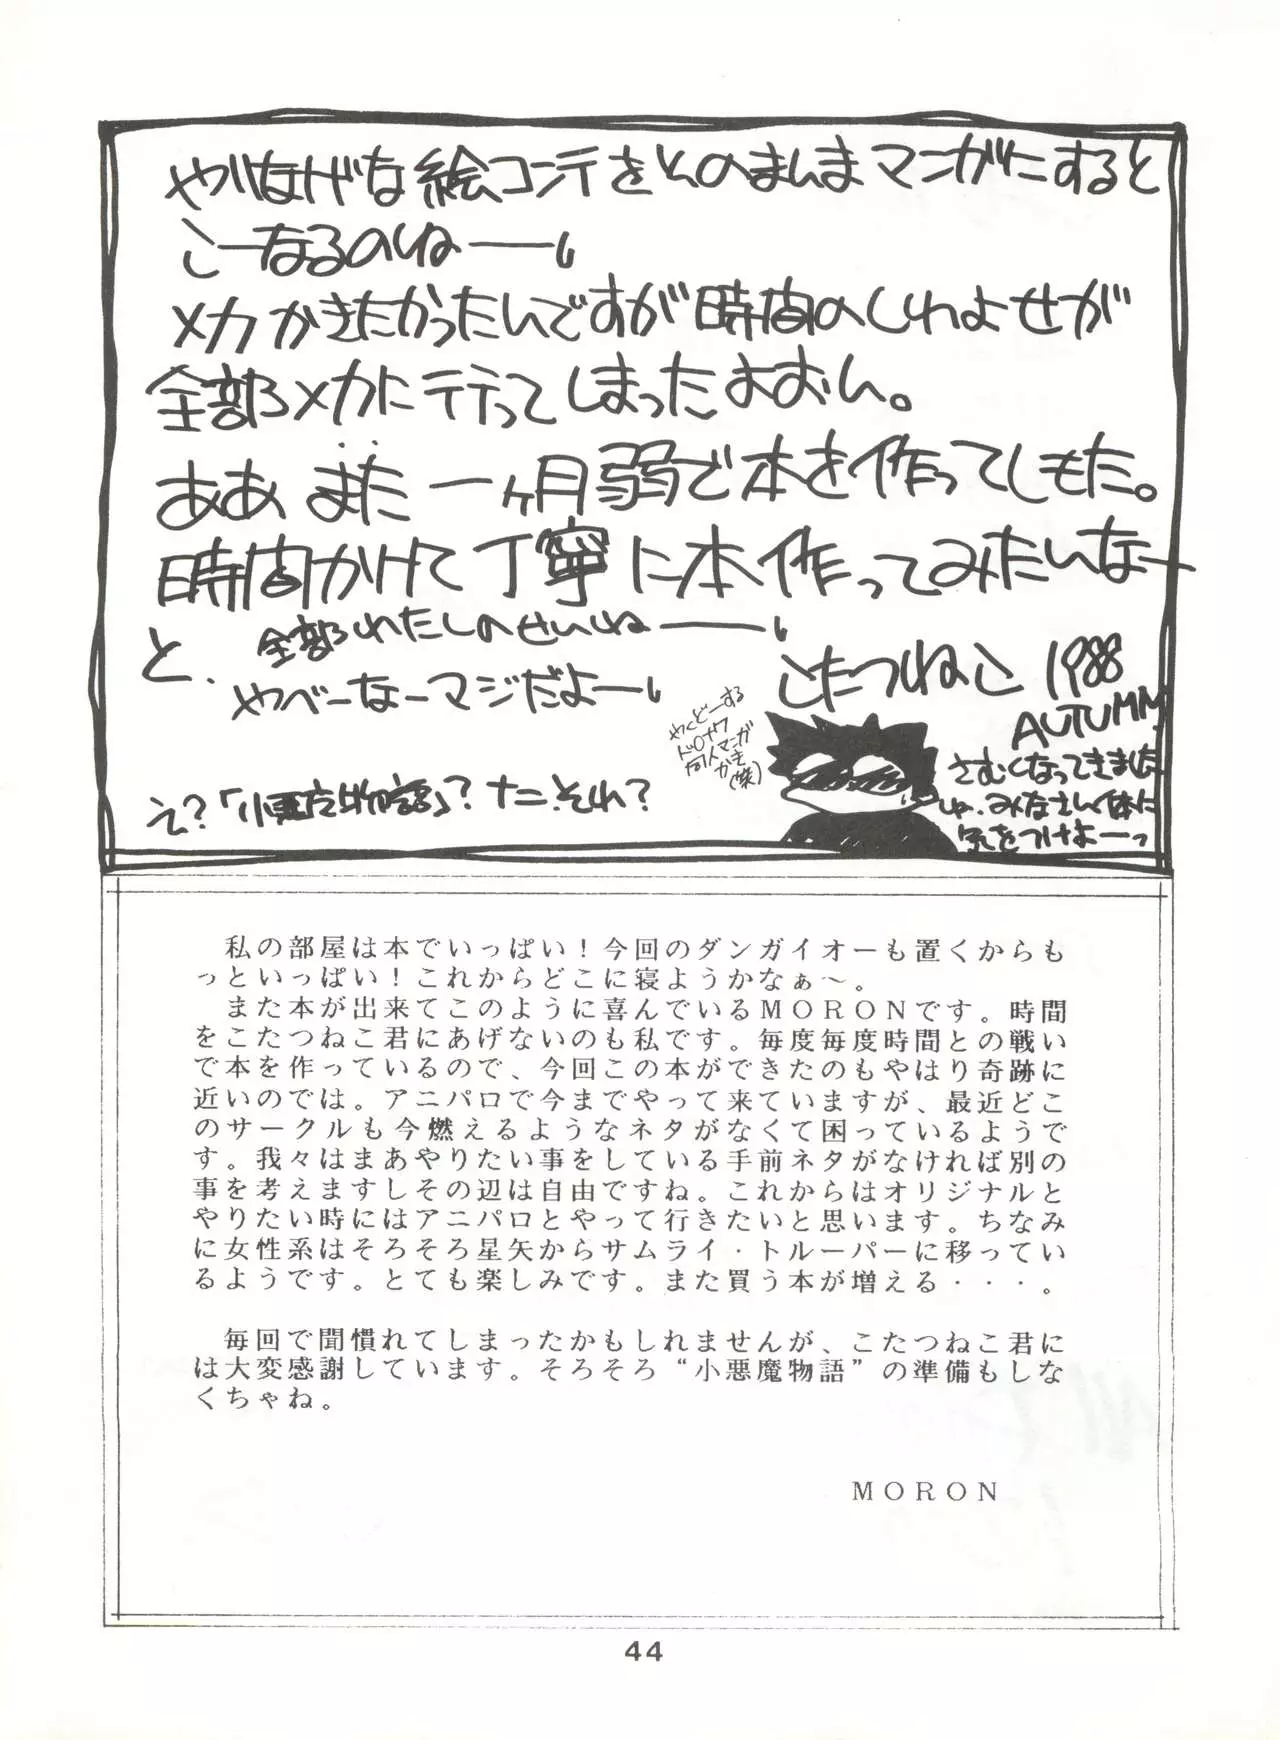 やりなげな絵コンテをそのまんまマンガにすると
こーなるのしね——い
メカかきたかったんですが時間のしわよせが
全部メカに行ってしまったよおん。
ああ また 一ヶ月弱で本を作ってしもた。
時間かけて丁寧に本作ってみたいなー
と、全部わたしのせいしね——い
やべーなーマジだよー い
え?「小悪魔物語」?ナニ、それ?
やくどーする
同人マンガ
かき
(笑)
こたつねこ 1988
AUTUMN
さむくなってきました
しゅ、みなさん体に
気をつけよーっ
私の部屋は本でいっぱい!今回のダンガイオーも置くからも
っといっぱい!これからどこに寝ようかなぁ~。
また本が出来てこのように喜んでいるMORONです。時間
をこたつねこ君にあげないのも私です。毎度毎度時間との戦い
で本を作っているので、今回この本ができたのもやはり奇跡に
近いのでは。アニパロで今までやって来ていますが、最近どこ
のサークルも今燃えるようなネタがなくて困っているようで
す。我々はまあやりたい事をしている手前ネタがなければ別の
事を考えますしその辺は自由ですね。これからはオリジナルと
やりたい時にはアニパロとやって行きたいと思います。ちなみ
に女性系はそろそろ星矢からサムライ・トルーパーに移ってい
るようです。とても楽しみです。また買う本が増える・・・。
毎回で聞慣れてしまったかもしれませんが、こたつねこ君に
は大変感謝しています。そろそろ“小悪魔物語”の準備もしな
くちゃね。
MORON
44